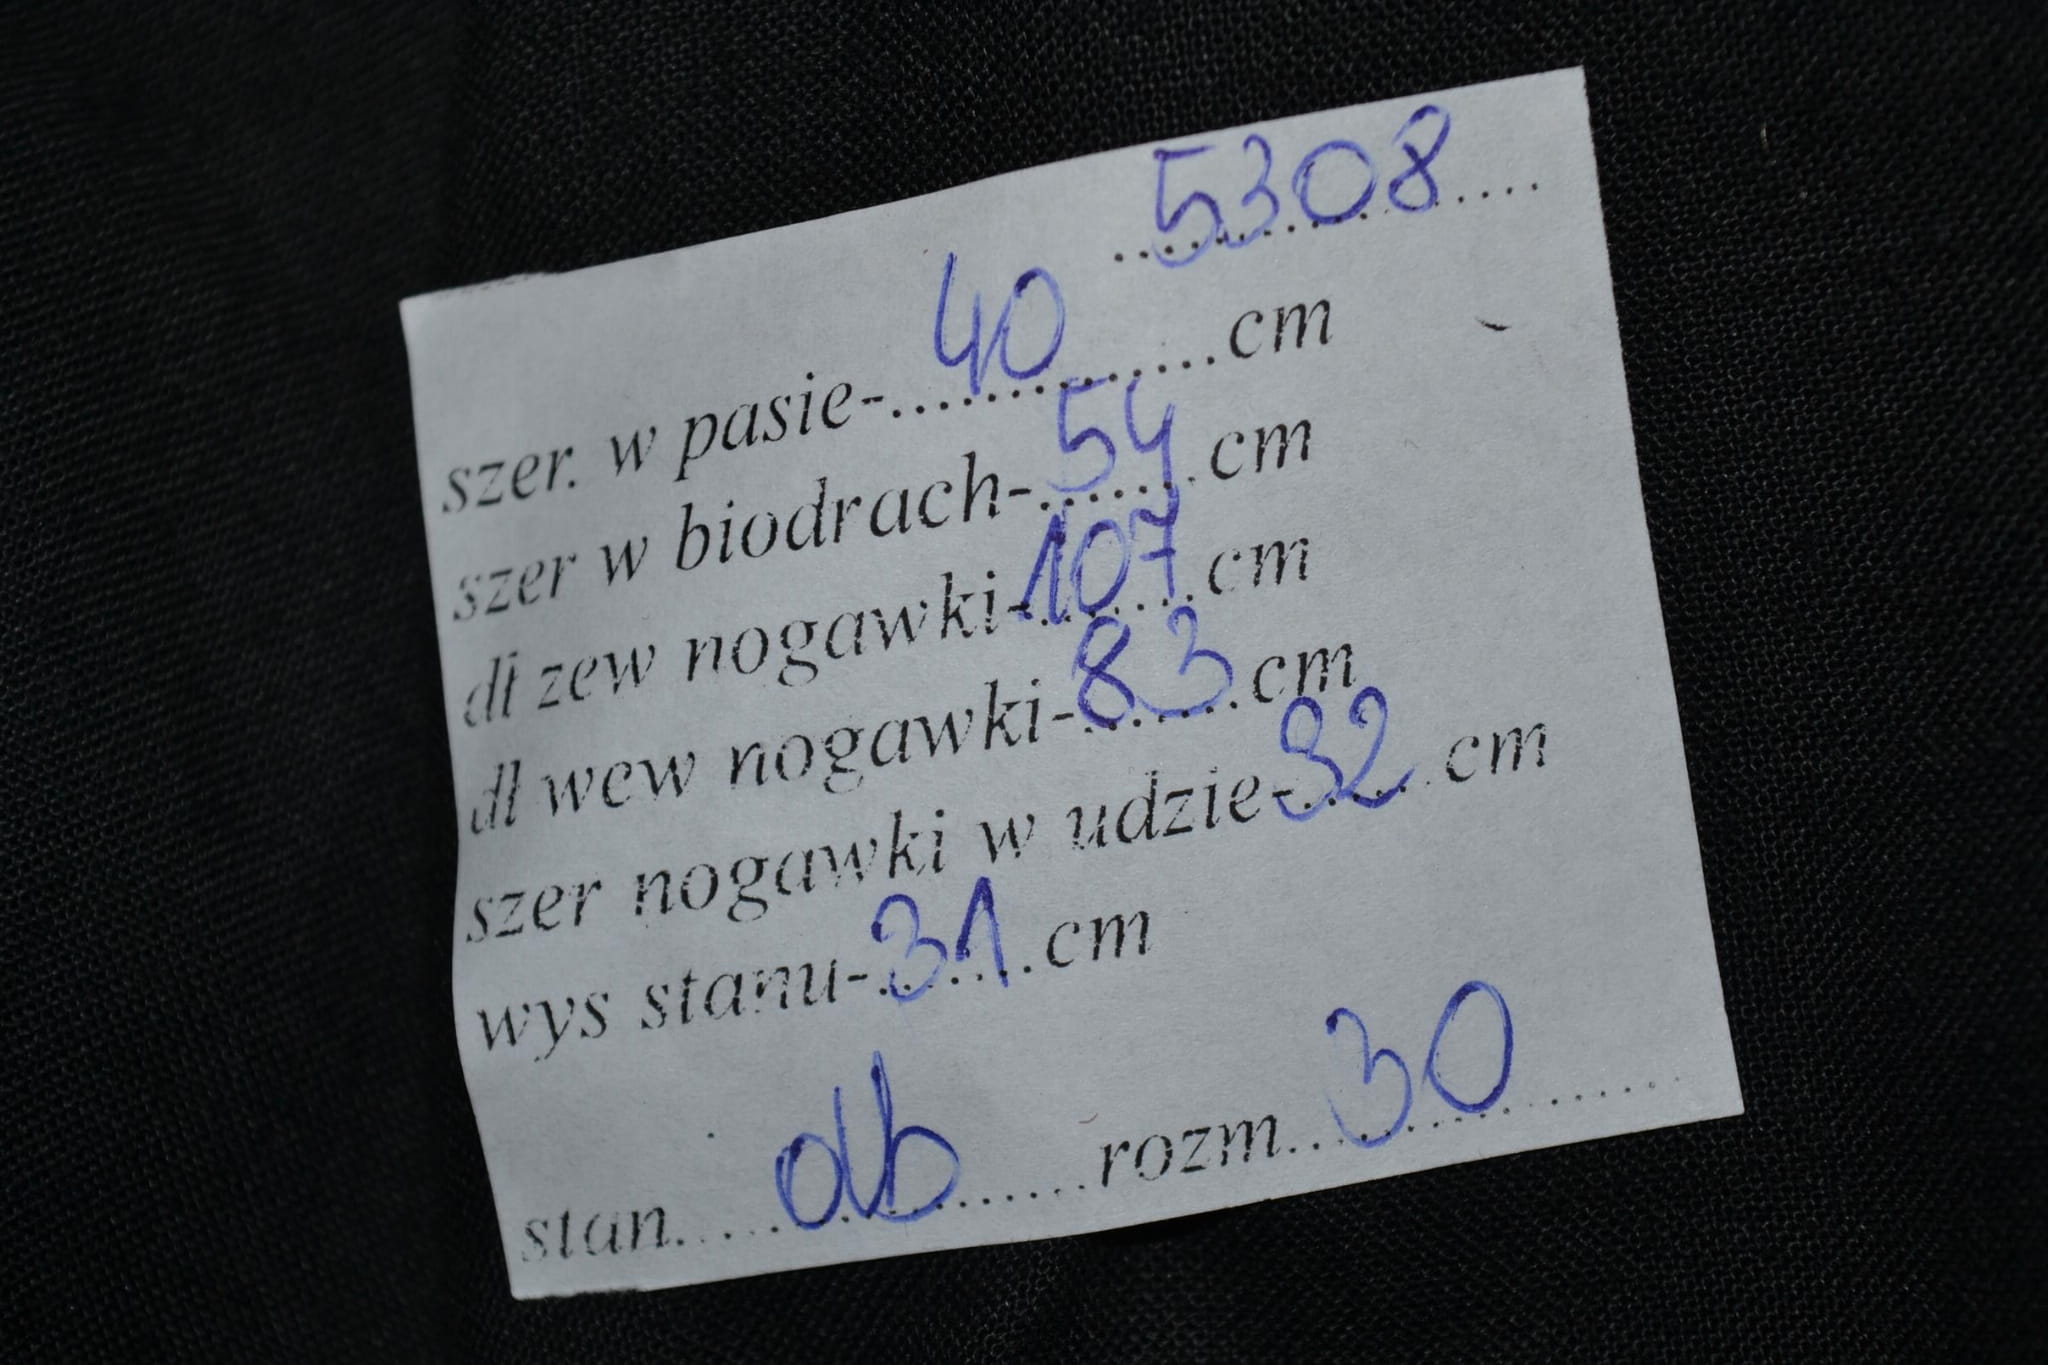 ..5308....
szer. w pasie-...40.......cm
szer w biodrach-.54.cm
dł zew nogawki-107.cm
dł wew nogawki-83.cm
szer nogawki w udzie-32.cm
wys stanu-31.cm
stan.....db......rozm..30......